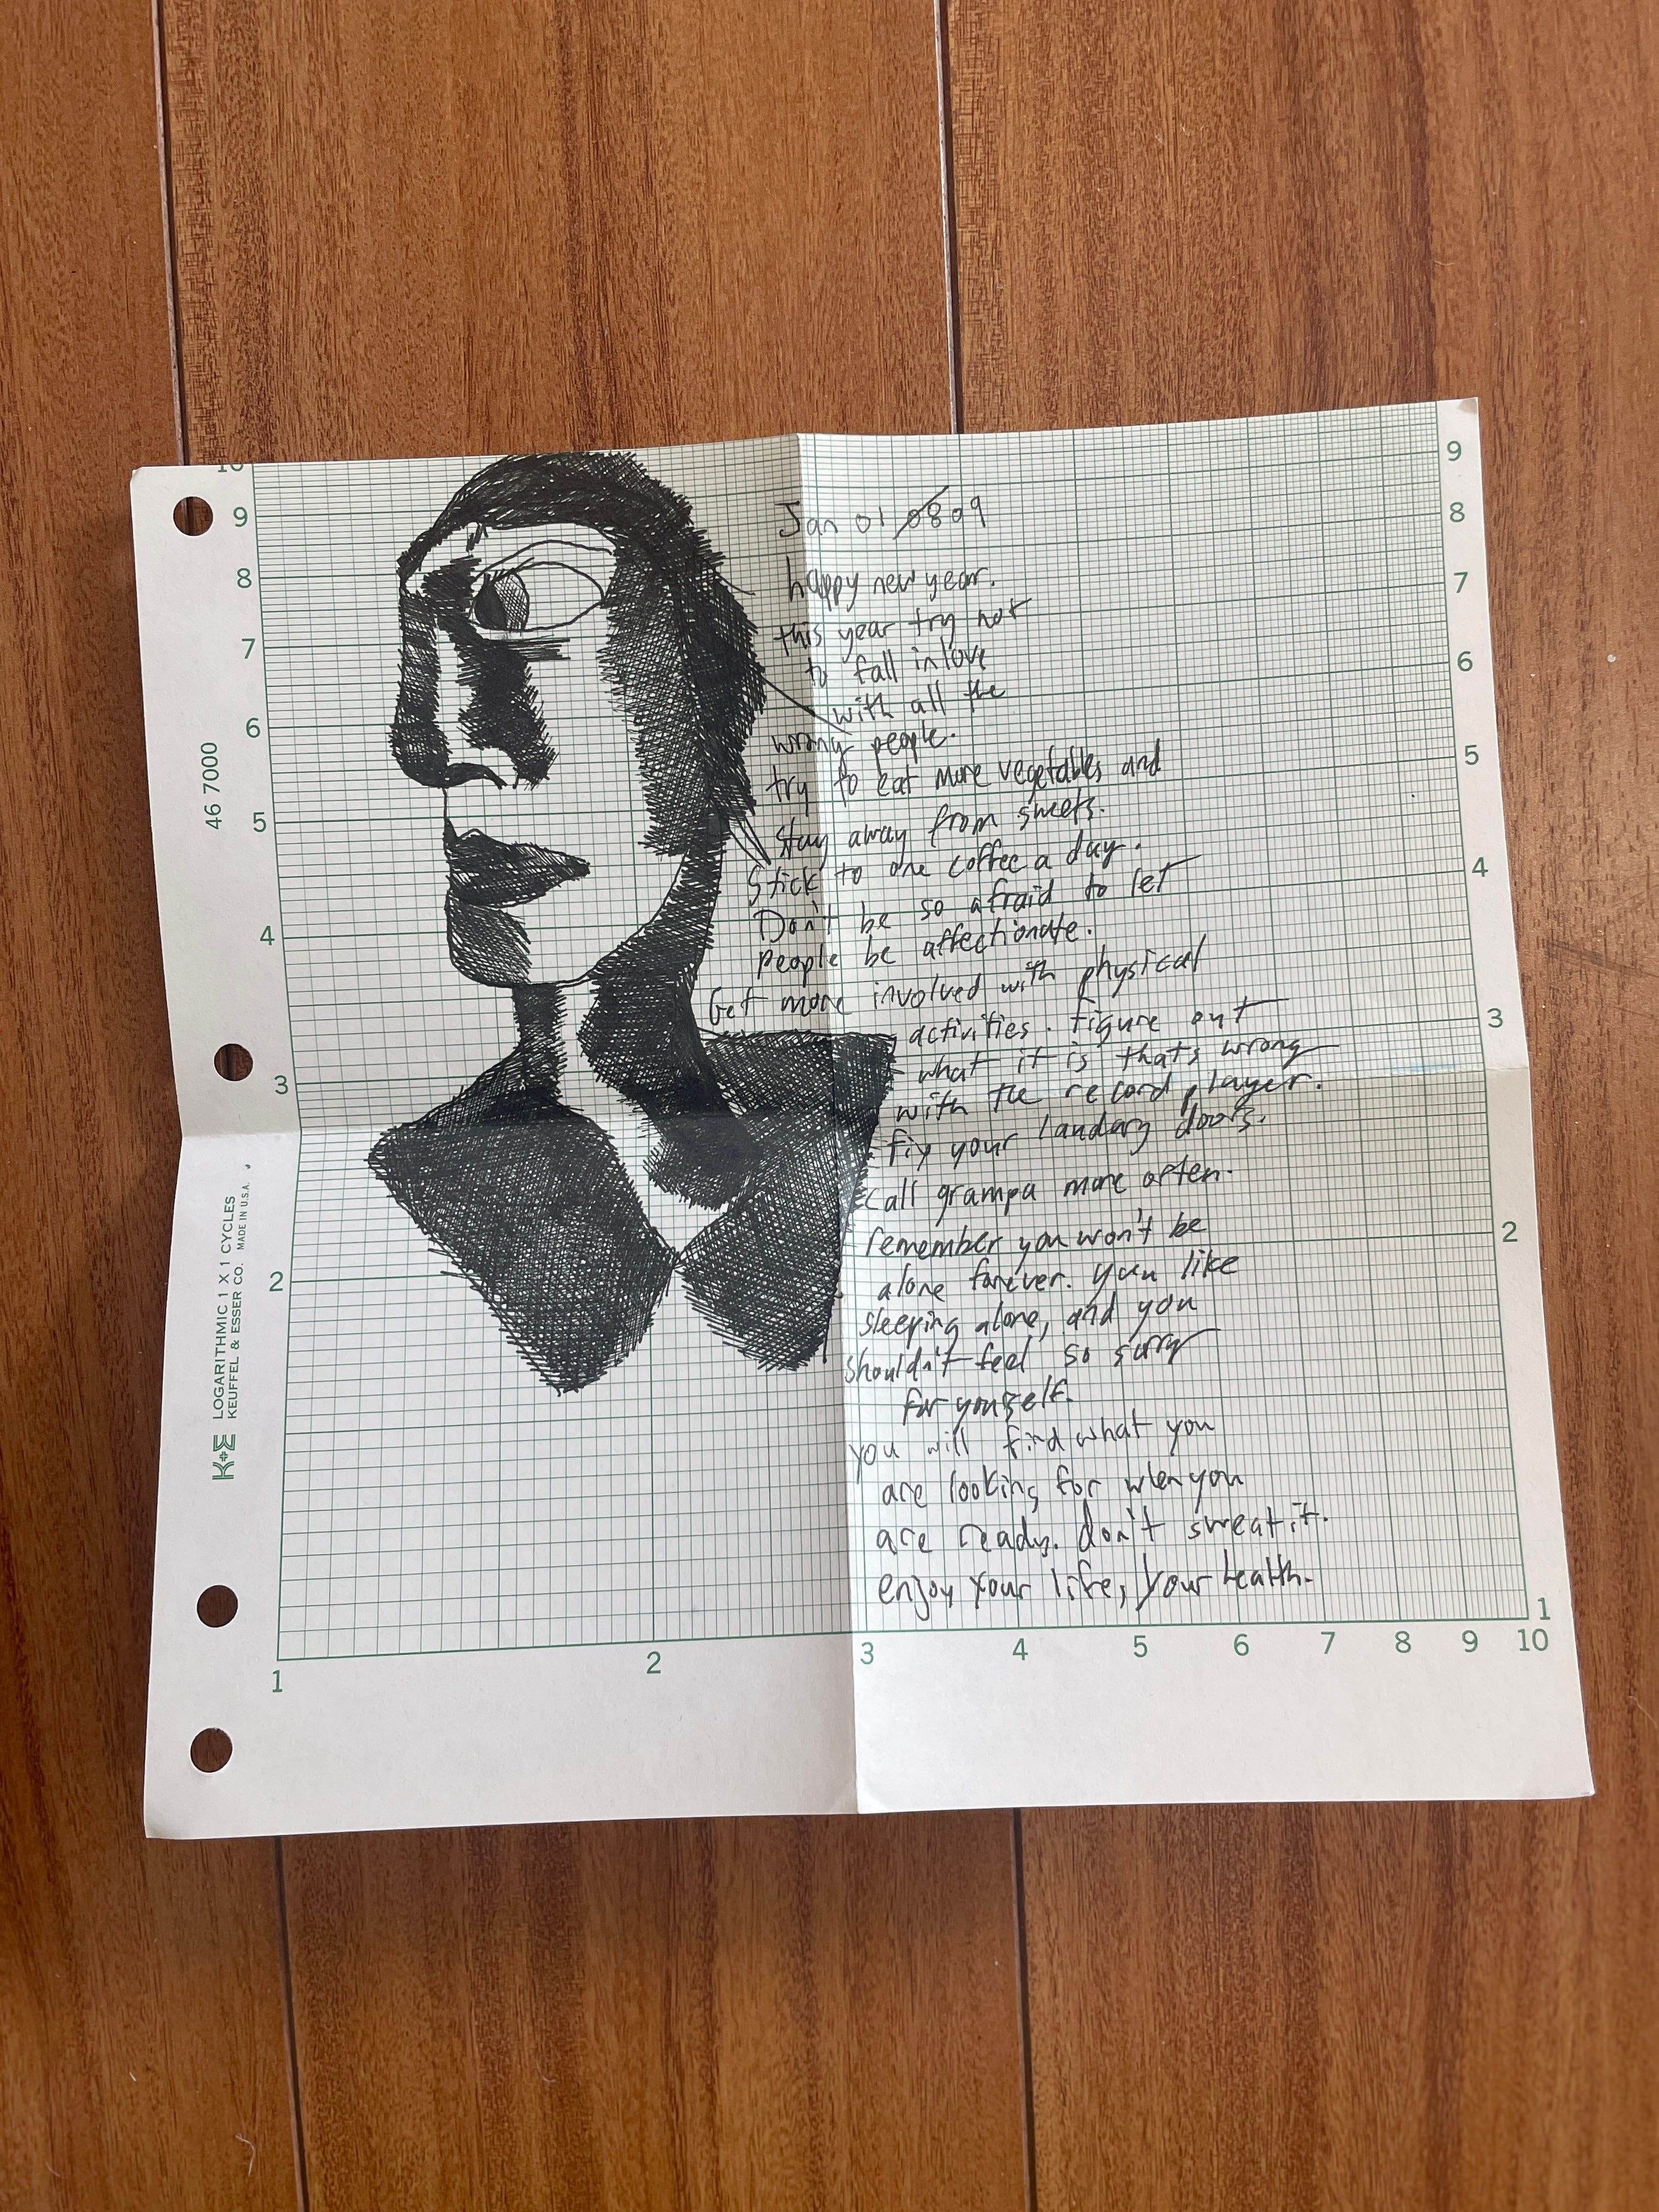 Jan 01 08 09
happy new year.
this year try not
to fall in love
with all the
wrong people.
try to eat more vegetables and
stay away from sweets.
Stick to one coffee a day.
Don't be so afraid to let
people be affectionate.
Get more involved with physical
activities. figure out
what it is thats wrong
with the record player.
fix your laundary doors.
call grampa more often.
remember you won't be
alone forever. you like
sleeping alone, and you
shouldn't feel so sorry
for yourself.
you will find what you
are looking for when you
are ready. don't sweat it.
enjoy your life, your health.
46 7000
K+E LOGARITHMIC 1 X 1 CYCLES
KEUFFEL & ESSER CO. MADE IN U.S.A.
10
9
8
7
6
5
4
3
2
1
2
3
4
5
6
7
8
9
10
9
8
7
6
5
4
3
2
1